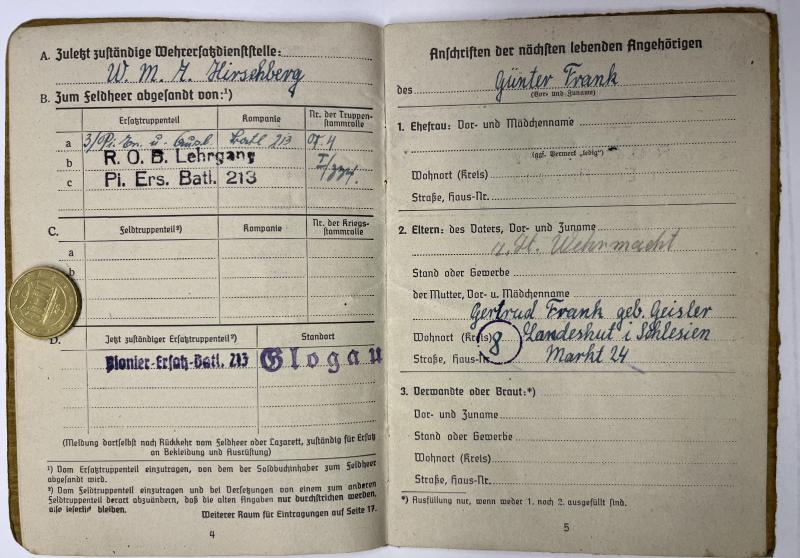 A. Zuletzt zuständige Wehrersatzdienststelle:
W. M. A. Hirschberg
B. Zum Feldheer abgesandt von:¹)
Ersatztruppenteil Kompanie Nr. der Truppenstammrolle
a 3/Pi. Batl 213
b R. O. B. Lehrgang
c Pi. Ers. Batl. 213
C. Feldtruppenteil²) Kompanie Nr. der Kriegsstammrolle
a
b
D. Jetzt zuständiger Ersatztruppenteil²) Standort
Pionier-Ersatz-Batl. 213 Glogau
(Meldung dortselbst nach Rückkehr vom Feldheer oder Lazarett, zuständig für Ersatz
an Bekleidung und Ausrüstung)
¹) Vom Ersatztruppenteil einzutragen, von dem der Soldbuchinhaber zum Feldheer
abgesandt wird.
²) Vom Feldtruppenteil einzutragen und bei Versetzungen von einem zum anderen
Feldtruppenteil derart abzuändern, daß die alten Angaben nur durchstrichen werden,
also leserlich bleiben.
Weiterer Raum für Eintragungen auf Seite 17.
4
Anschriften der nächsten lebenden Angehörigen
des Günter Frank
(Vor- und Zuname)
1. Ehefrau: Vor- und Mädchenname
(ggf. Vermerk „ledig“)
Wohnort (Kreis)
Straße, Haus-Nr.
2. Eltern: des Vaters, Vor- und Zuname
z. Zt. Wehrmacht
Stand oder Gewerbe
der Mutter, Vor- u. Mädchenname
Gertrud Frank geb. Geisler
Wohnort (Kreis) 8 Landeshut i Schlesien
Straße, Haus-Nr. Markt 24
3. Verwandte oder Braut:*)
Vor- und Zuname
Stand oder Gewerbe
Wohnort (Kreis)
Straße, Haus-Nr.
*) Ausfüllung nur, wenn weder 1. noch 2. ausgefüllt sind.
5